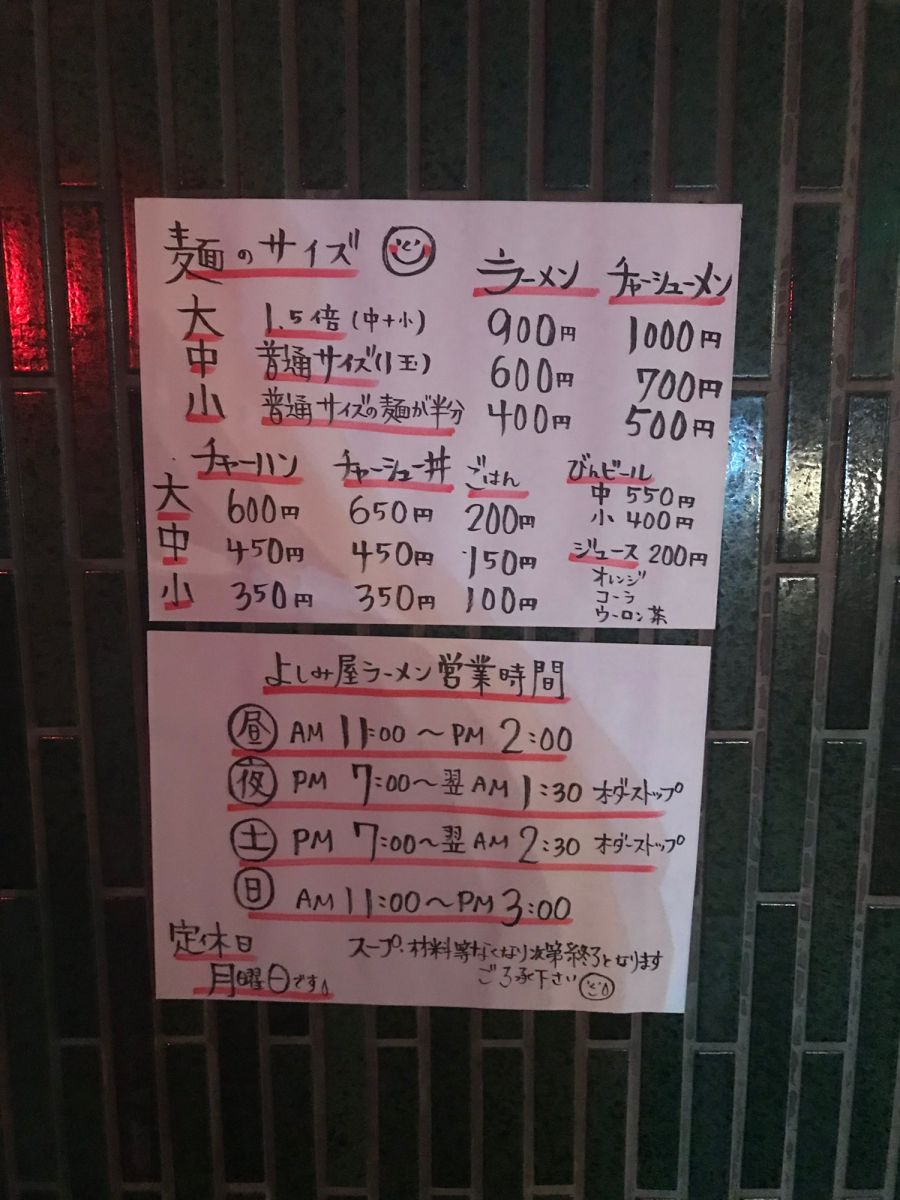 麺のサイズ ラーメン チャーシューメン
大 1.5倍(中+小) 900円 1000円
中 普通サイズ(1玉) 600円 700円
小 普通サイズの麺が半分 400円 500円
チャーハン チャーシュー丼 ごはん びんビール
大 600円 650円 200円 中 550円
小 400円
中 450円 450円 150円 ジュース 200円
オレンジ
小 350円 350円 100円 コーラ
ウーロン茶
よしみ屋ラーメン営業時間
昼 AM 11:00〜PM 2:00
夜 PM 7:00〜翌AM 1:30 オーダーストップ
土 PM 7:00〜翌AM 2:30 オーダーストップ
日 AM 11:00〜PM 3:00
定休日 スープ・材料等なくなり次第終了となります
月曜日です。 ご了承下さい